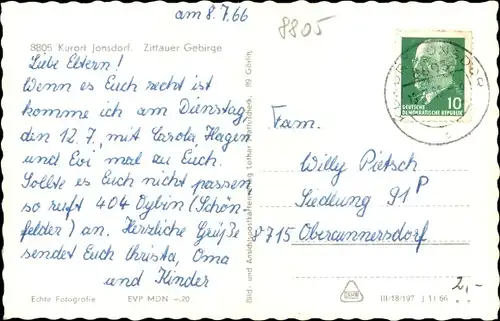 am 8.7.66
8805
8805 Kurort Jonsdorf. Zittauer Gebirge
Liebe Eltern!
Wenn es Euch recht ist
komme ich am Dienstag
den 12.7. mit Carola, Hagen
und Evi mal zu Euch.
Sollte es Euch nicht passen
so ruft 404 Oybin (Schön
felder) an. Herzliche Grüße
sendet Euch Christa, Oma
und Kinder
Echte Fotografie EVP MDN -,20
Bild- und Ansichtskartenverlag Lothar 89 Görlitz
10
DEUTSCHE
DEMOKRATISCHE REPUBLIK
Fam.
Willy Pietsch
Siedlung 91 P
8715 Obercunnersdorf
III/18/197 J 11 66
2,-